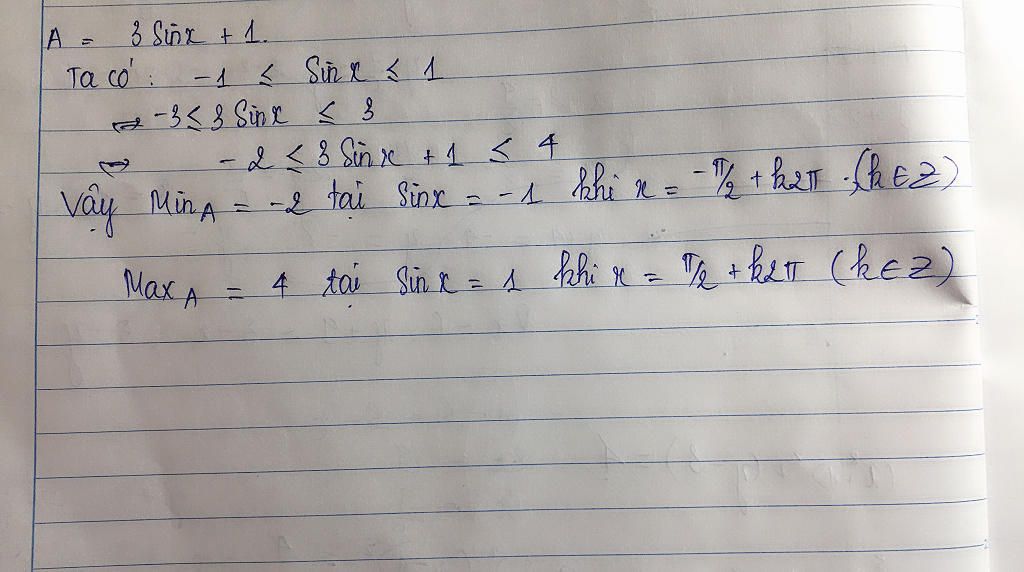 A = 3 Sin x + 1.
Ta có: -1 ≤ Sin x ≤ 1
⇔ -3 ≤ 3 Sin x ≤ 3
⇔ -2 ≤ 3 Sin x + 1 ≤ 4
Vậy Min A = -2 tại Sin x = -1 khi x = -π/2 + k2π. (k ∈ Z)
Max A = 4 tại Sin x = 1 khi x = π/2 + k2π (k ∈ Z)